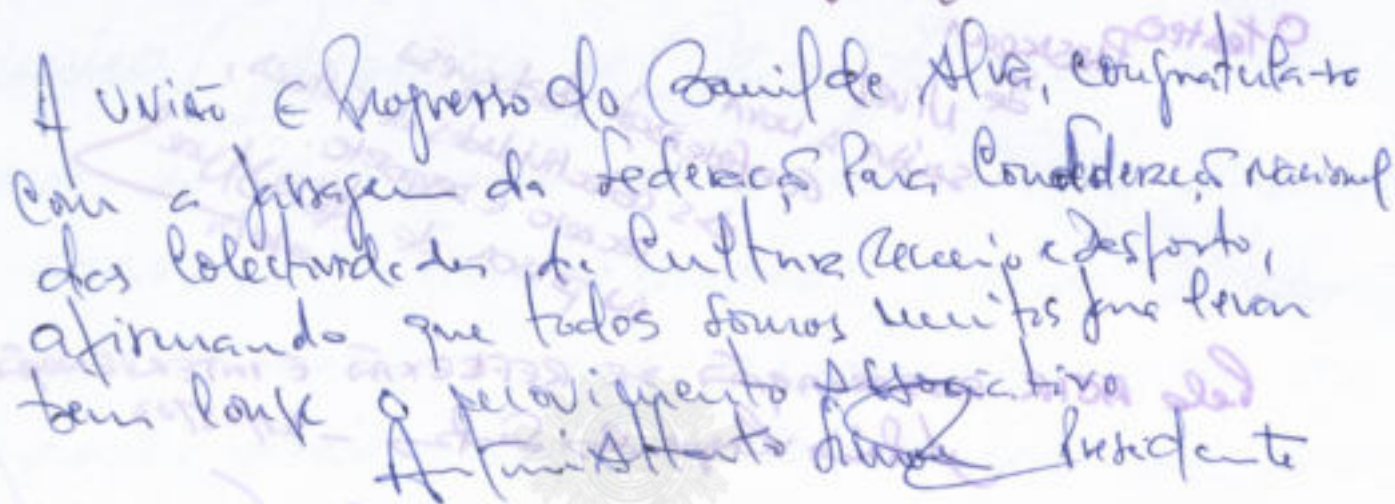 A UNIÃO E Progresso do Barril de Alva, congratula-se
com a passagem da Federação Para Confederação Nacional
das Colectividades de Cultura Recreio e Desporto,
afirmando que todos somos muitos para levar
bem longe o movimento Associativo
António Alberto Presidente